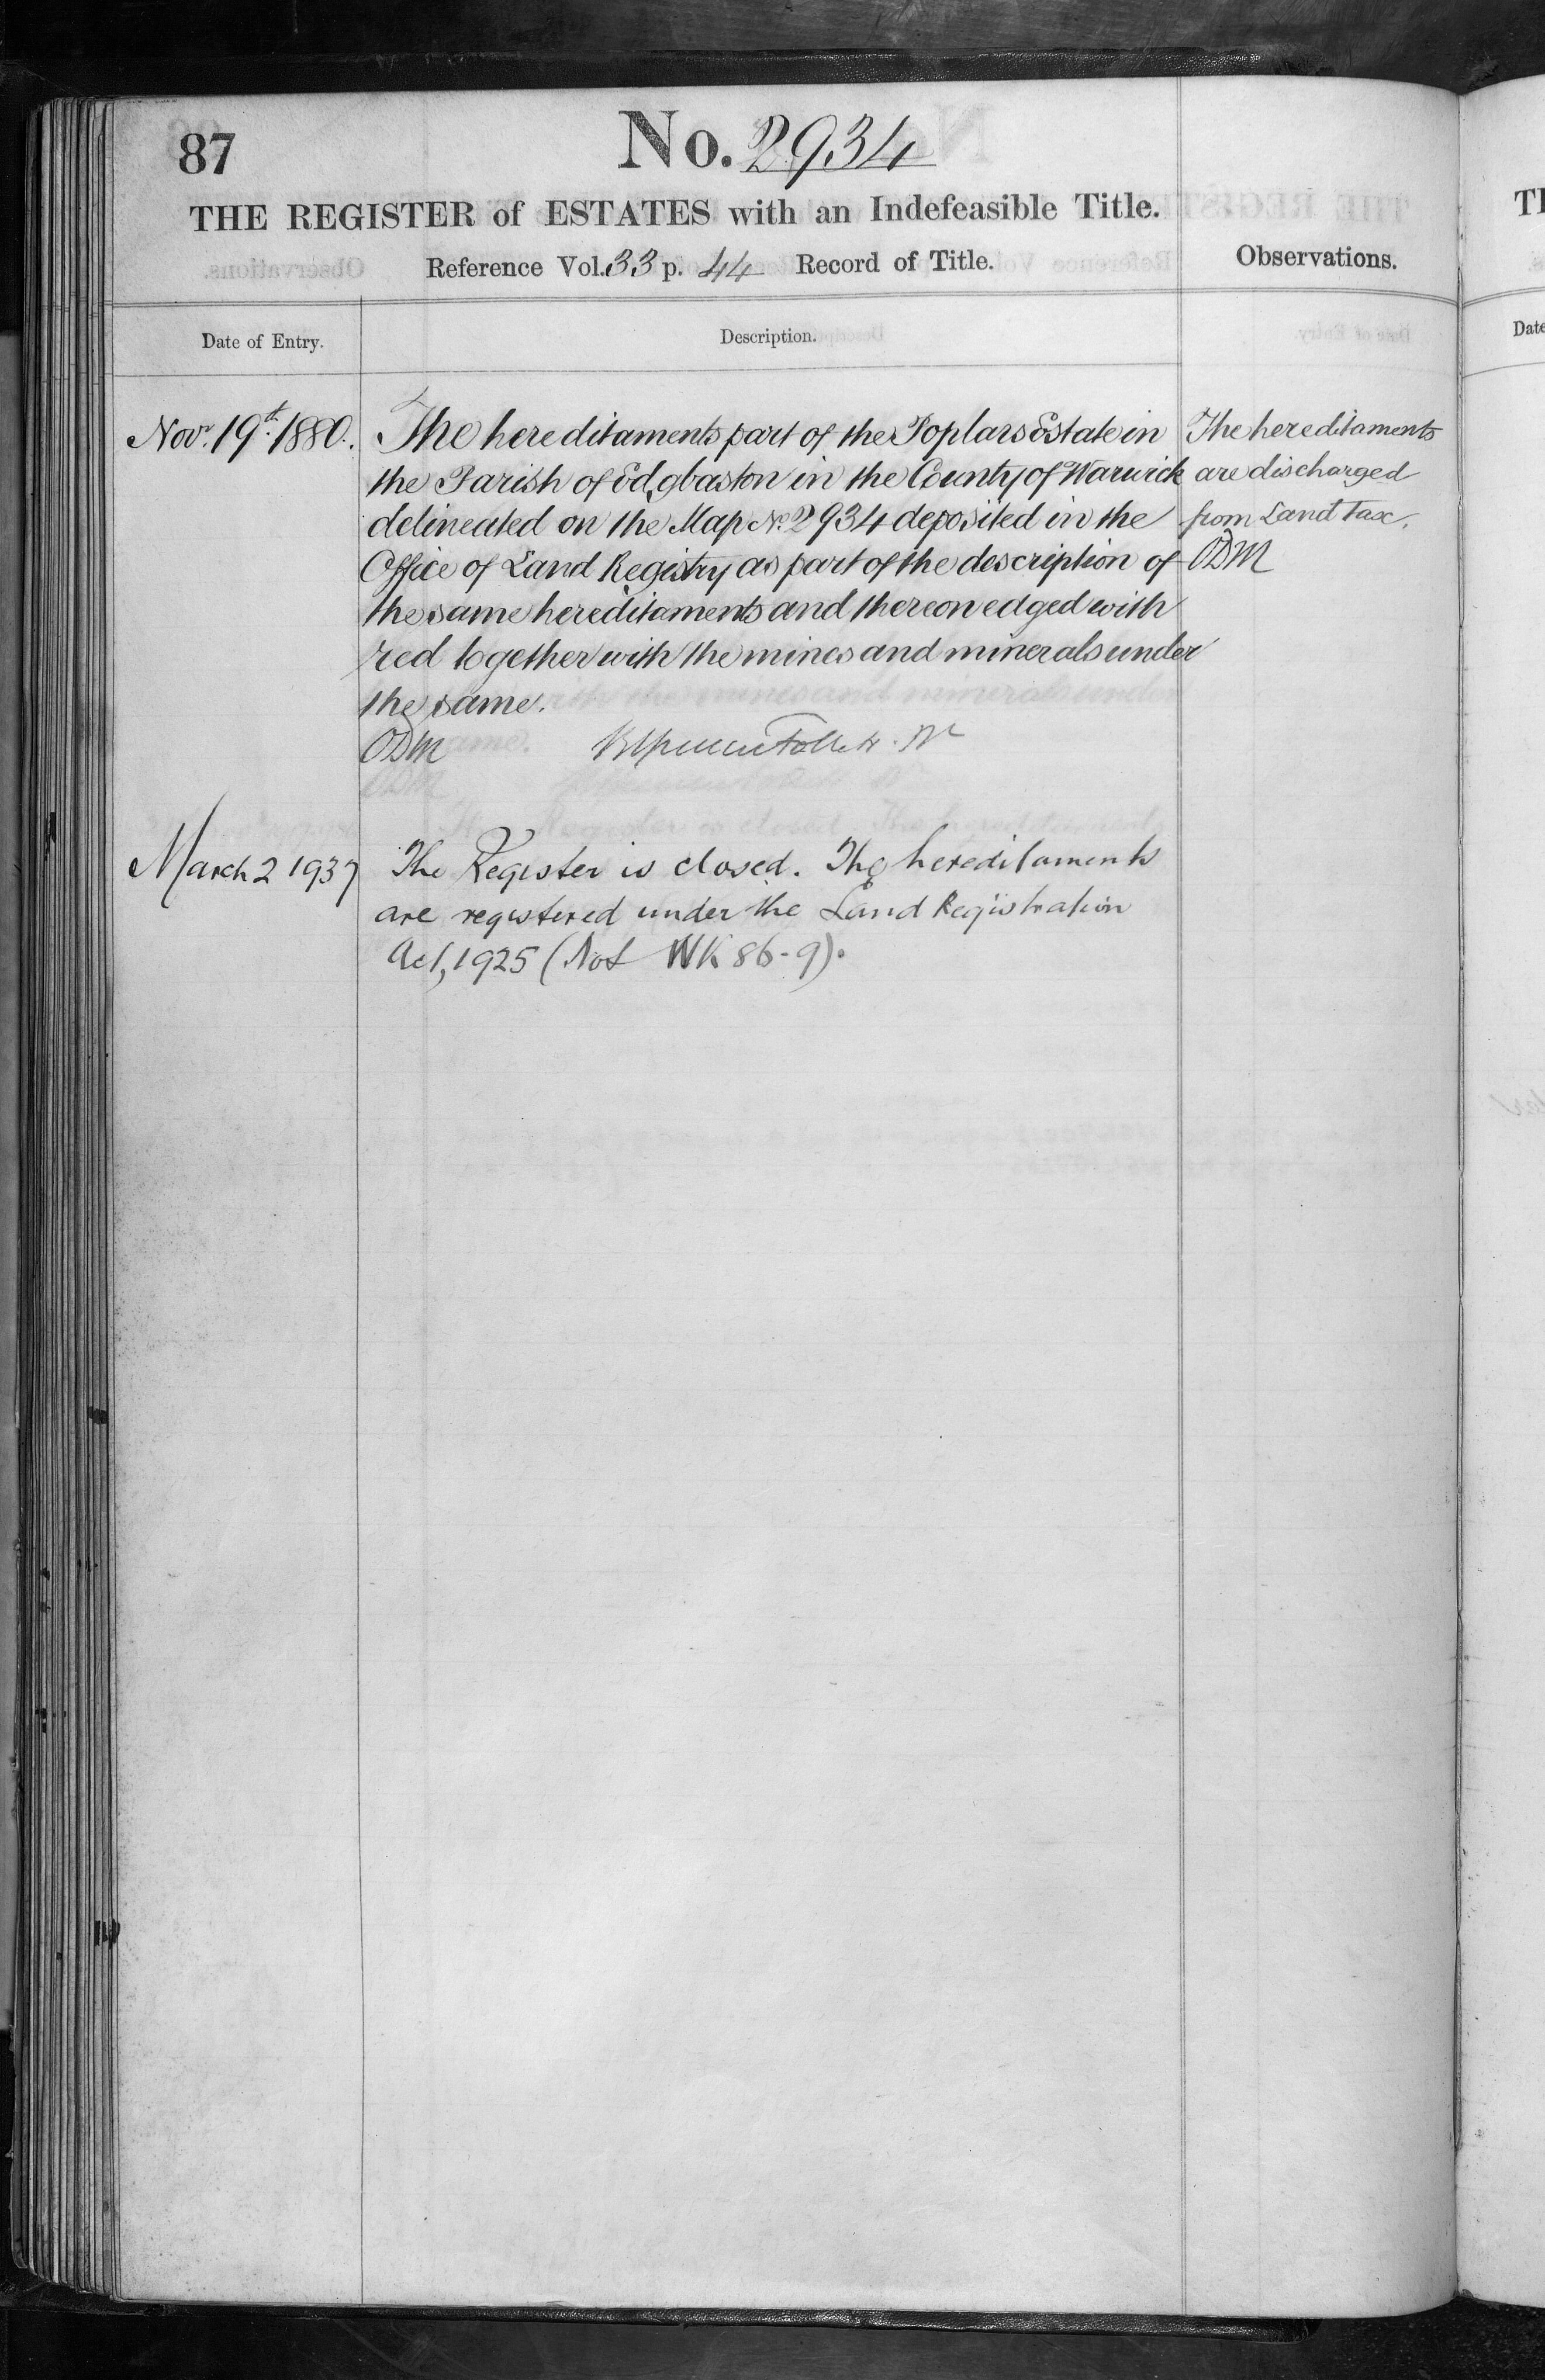 87
No. 2934
THE REGISTER of ESTATES with an Indefeasible Title.
Reference Vol. 33 p. 44 Record of Title.
Observations.
Date of Entry.
Description.
Novr. 19th 1880.
The hereditaments part of the Poplars Estate in
the Parish of Edgbaston in the County of Warwick
delineated on the Map No. 2934 deposited in the
Office of Land Registry as part of the description of
the same hereditaments and thereon edged with
red together with the mines and minerals under
the same.
ODM
The hereditaments
are discharged
from Land Tax.
ODM
March 2 1937
The Register is closed. The hereditaments
are registered under the Land Registration
Act, 1925 (Not WK 86-9).
Date